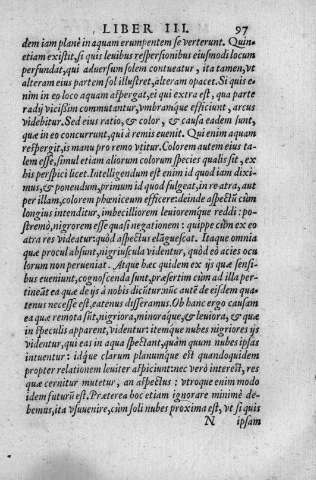 LIBER III. 97
dem iam planè in aquam erumpentem se verterunt. Quin-
etiam existit, si quis leuibus respersionibus eiusmodi locum
perfundat, qui aduersum solem contueatur, ita tamen, vt
alteram eius partem sol illustret, alteram opacet. Si quis e-
nim in eo loco aquam aspergat, ei qui extra est, qua parte
radij vicissim commutantur, vmbramque efficiunt, arcus
videbitur. Sed eius ratio, & color, & causa eadem sunt,
quæ in eo concurrunt, qui à remis euenit. Qui enim aquam
respergit, is manu pro remo vtitur. Colorem autem eius ta-
lem esse, simul etiam aliorum colorum species qualis sit, ex
his perspici licet. Intelligendum est enim id quod iam dixi-
mus, & ponendum, primum id quod fulgeat, in re atra, aut
per illam, colorem phœniceum efficere: deinde aspectũ cùm
longius intenditur, imbecilliorem leuioremque reddi: po-
stremò, nigrorem esse quasi negationem: quippe cùm ex eo
atra res videatur: quòd aspectus elãguescat. Itaque omnia
quæ procul absunt, nigriuscula videntur, quòd eò acies ocu
lorum non perueniat. Atque hæc quidem ex ijs quæ sensi-
bus eueniunt, cognoscenda sunt, præsertim cùm ad illa per-
tineãt ea quæ de ijs à nobis dicũtur: nũc autẽ de eisdem qua-
tenus necesse est, eatenus disseramus. Ob hanc ergo causam
ea quæ remota sũt, nigriora, minoráque, & leuiora, & quæ
in speculis apparent, videntur: itemque nubes nigriores ijs
videntur, qui eas in aqua spectant, quàm quum nubes ipsas
intuentur: idque clarum planumque est quandoquidem
propter relationem leuiter aspiciunt: nec verò interest, res
quæ cernitur mutetur, an aspectus: vtroque enim modo
idem futurũ est. Præterea hoc etiam ignorare minimè de-
bemus, ita vsuuenire, cùm soli nubes proxima est, vt si quis
N ipsam